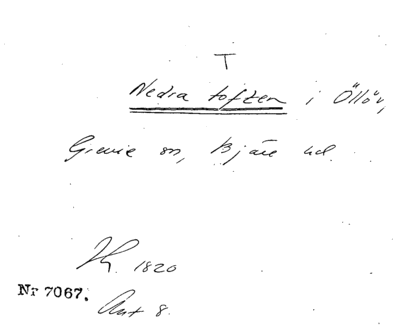 T
Nedra toften i Öllöv,
Grevie sn, Bjäre hd.
1820
Nr 7067.
Akt 8.